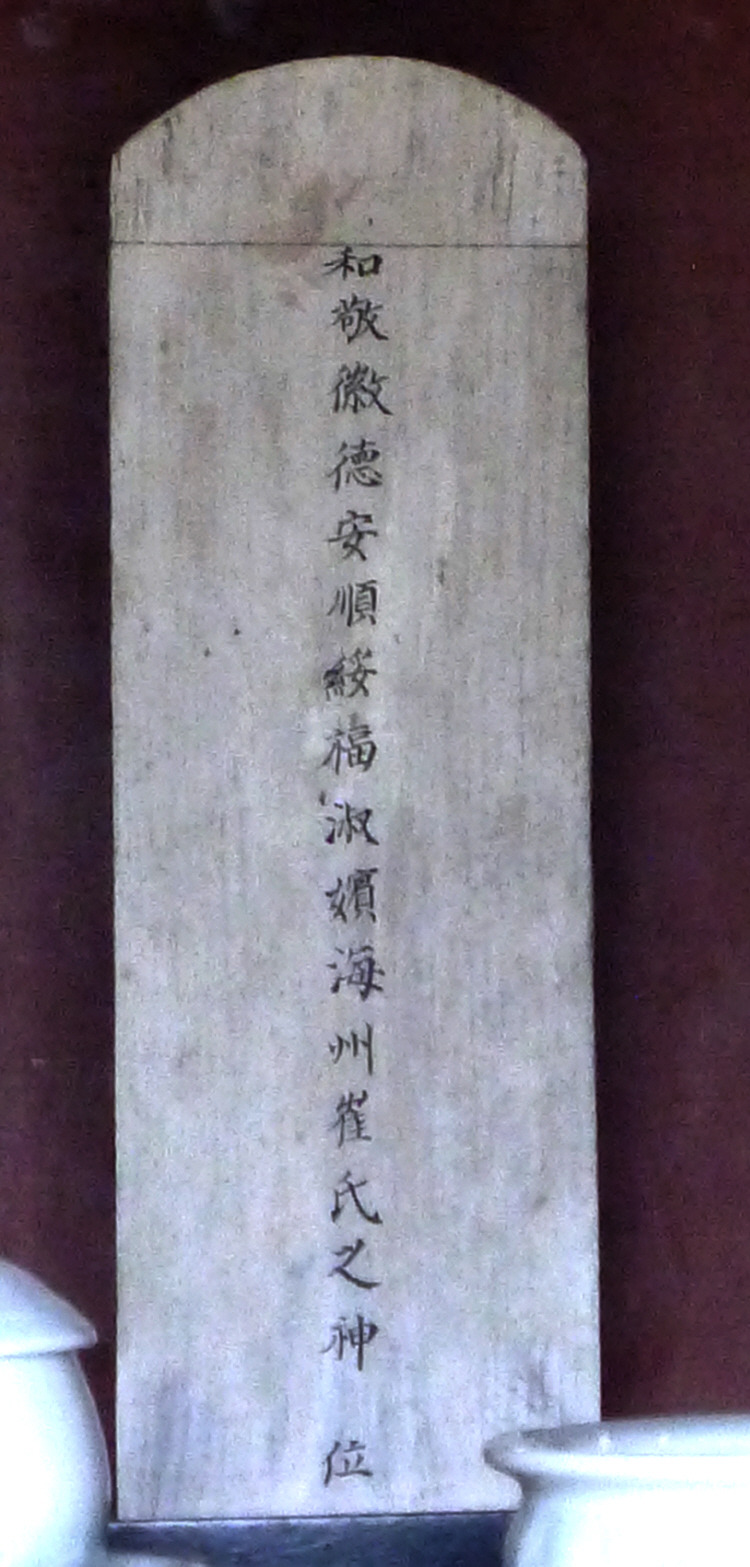 和敬徽德安順綏福淑嬪海州崔氏之神位